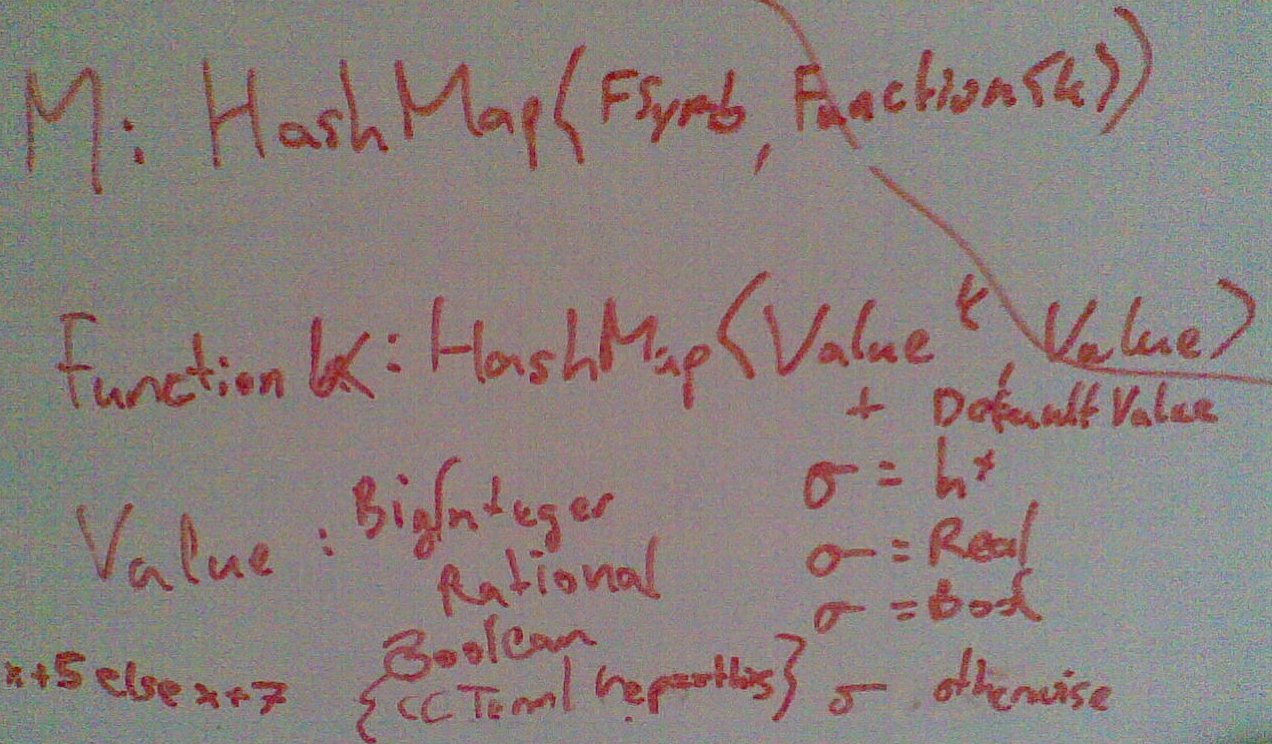 M: HashMap⟨FSymb, Function⟨k⟩⟩
Function k: HashMap⟨Value^k, Value⟩
+ Default Value
Value : BigInteger σ = Int
Rational σ = Real
Boolean σ = Bool
x+5 else x+7 { CC Term } σ otherwise